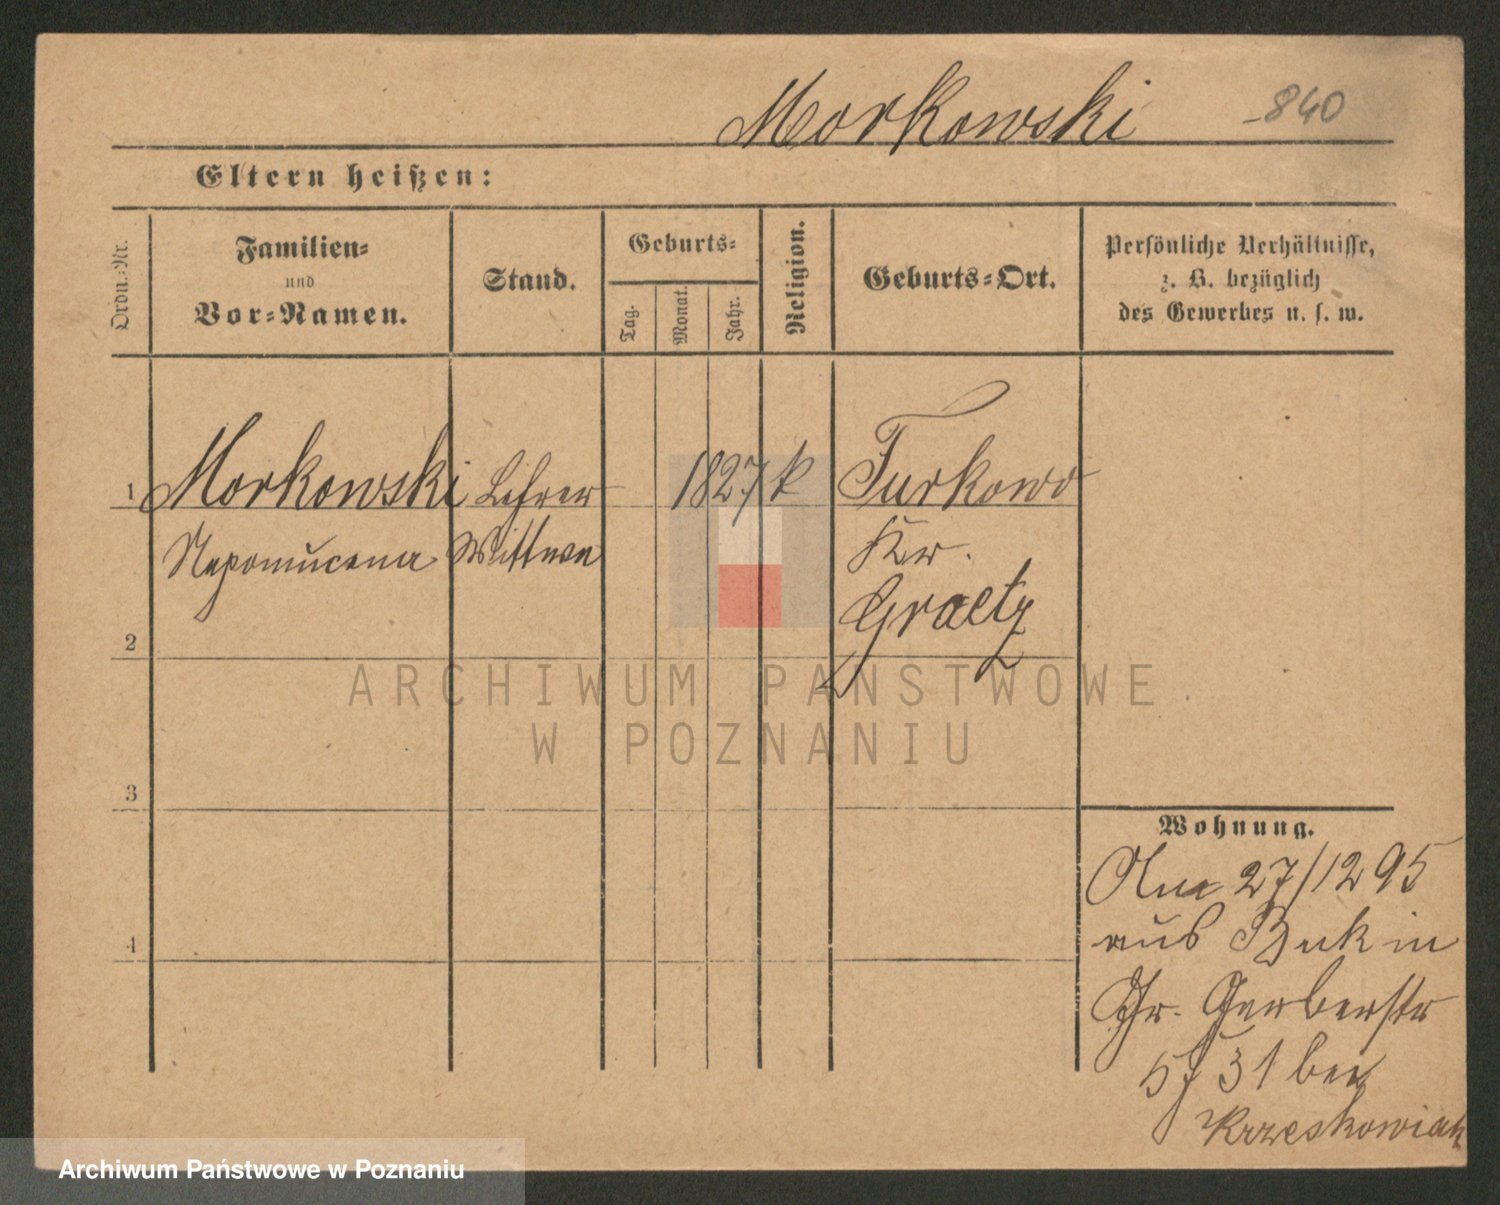 Morkowski -840
Eltern heißen:
Ordn.-Nr.
Familien-
und
Vor-Namen.
Stand.
Geburts-
Tag.
Monat.
Jahr.
Religion.
Geburts-Ort.
Persönliche Verhältnisse,
z. B. bezüglich
des Gewerbes u. s. w.
1 Morkowski Lehrer 1827 k Turkowo
Nepomucena Wittwe Kr.
Graetz
2
3
4
Wohnung.
Am 27/12 95
aus Buk in
Gr. Gerberstr
31 bei
Krzeskowiak
ARCHIWUM PAŃSTWOWE
W POZNANIU
Archiwum Państwowe w Poznaniu